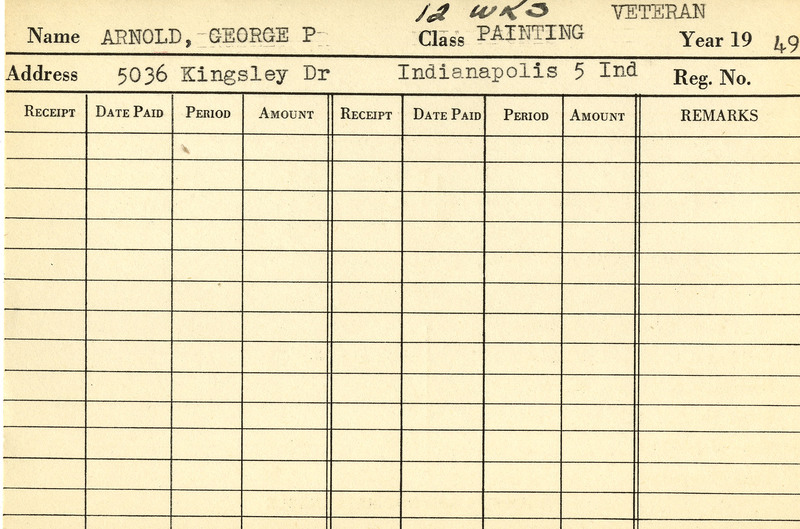 12 WKS VETERAN
Name ARNOLD, GEORGE P Class PAINTING Year 19 49
Address 5036 Kingsley Dr Indianapolis 5 Ind Reg. No.
RECEIPT DATE PAID PERIOD AMOUNT RECEIPT DATE PAID PERIOD AMOUNT REMARKS